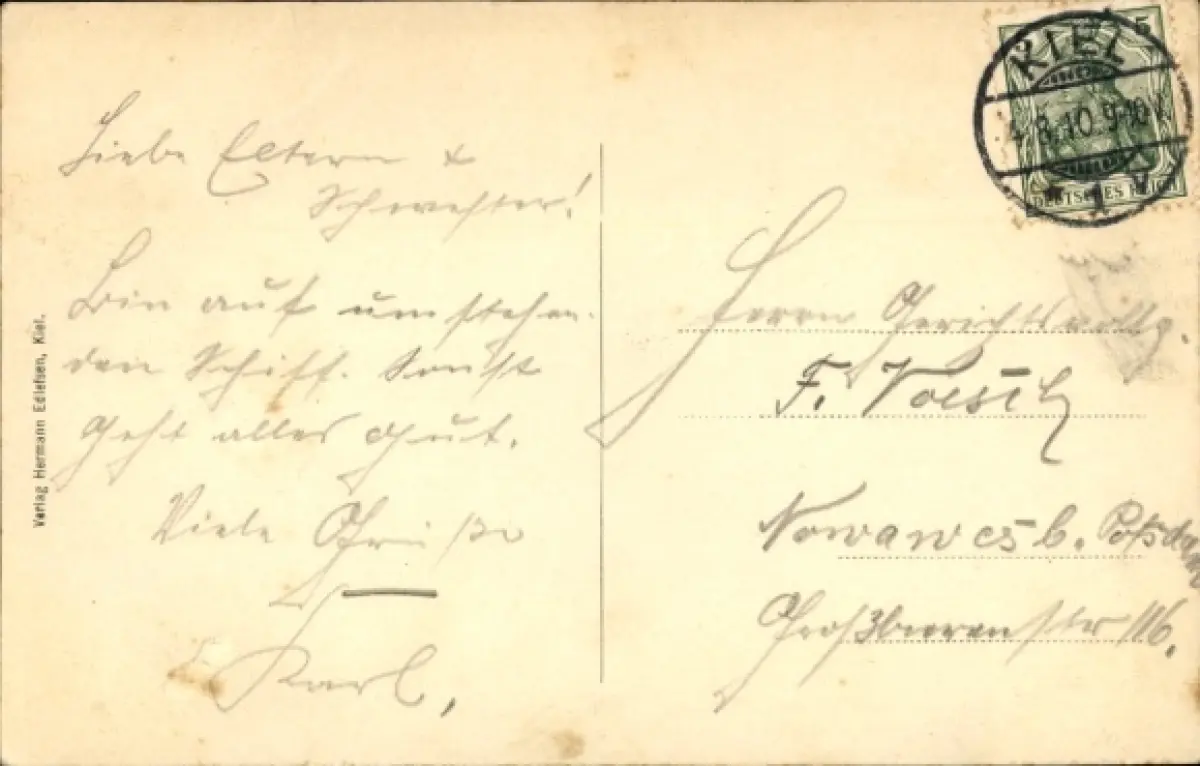 Liebe Eltern &
Schwester!
Bin auf umstehen-
den Schiff. Sonst
geht alles gut.
Viele Grüße
Karl,
Verlag Hermann Edlefsen, Kiel.
5
KIEL
10.9-10V
* 1 V
DEUTSCHES REICH
Herrn
F. Voesch
Nowawes b. Potsdam
Großbeerenstr 116.